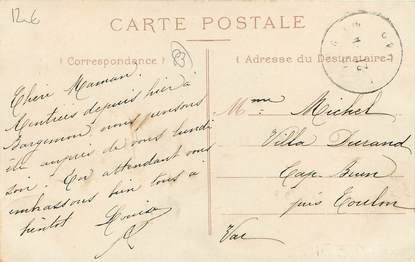 12€
CARTE POSTALE
( Correspondance )
83
( Adresse du Destinataire )
Chère Maman.
Rentrées depuis hier à
Bargemon, nous pensons
être auprès de vous lundi
soir. En attendant vous
embrassons bien tous à
bientôt Louise
Mme Michel
Villa Durand
Cap Brun
près Toulon
Var